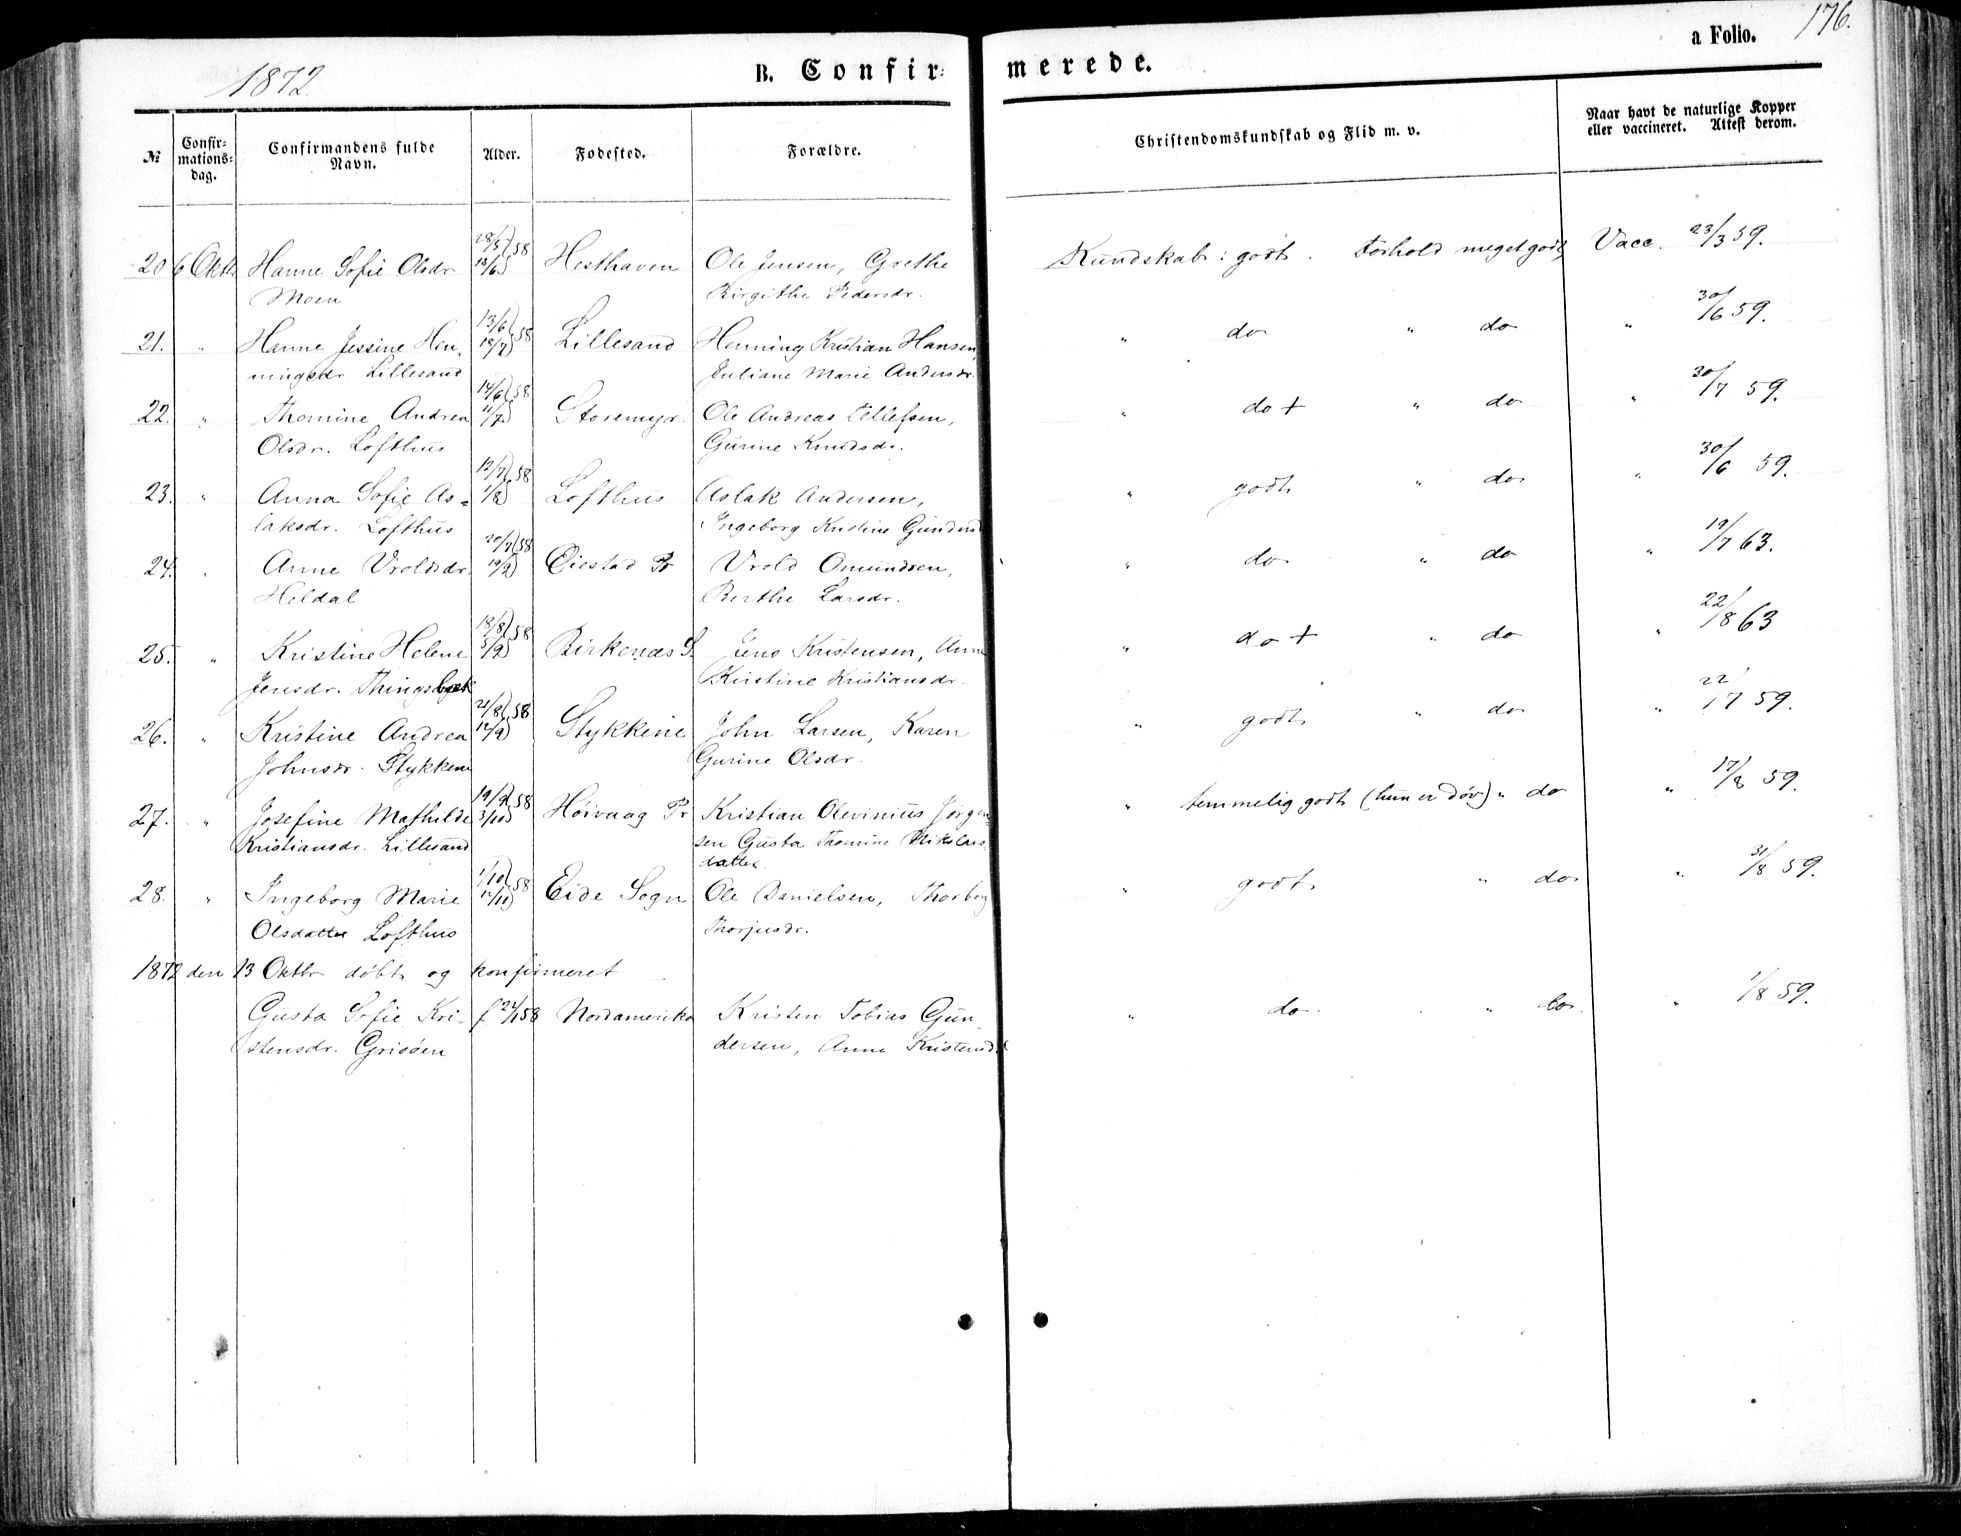 1872.
B. Confir-
merede.
a Folio.
176.
№
Confir-
mations-
dag.
Confirmandens fulde
Navn.
Alder.
Fødested.
Forældre.
Christendomskundskab og Flid m. v.
Naar havt de naturlige Kopper
eller vaccineret. Attest derom.
20 6 Oktb Hanne Sofie Olsdr. 28/5 13/6 58 Hesthaven Ole Jensen, Grethe Kundskab: godt. Forhold meget godt Vacc. 23/3 59.
Moen Birgithe Pedersdr.
21. " Hanne Jessine Hen- 13/6 18/7 58 Lillesand Henning Kristian Hansen, " do " do " 30/6 59.
ningsdr. Lillesand Juliane Marie Andersdr.
22. " Thomine Andrea 14/6 11/7 58 Storemyr. Ole Andreas Tellefsen, " do + " do " 30/7 59.
Olsdr. Lofthus Gurine Knudsdr.
23. " Anna Sofie As- 12/7 1/8 58 Lofthus Aslak Andersen, " godt " do " 30/6 59.
laksdr. Lofthus Ingeborg Kristine Gundersd
24. " Anne Vroldsdr. 20/7 19/9 58 Øiestad Pr Vrold Omundsen, " do " do " 19/7 63.
Heldal Berthe Larsdr.
25. " Kristine Helene 18/8 5/9 58 Birkenæs S. Jens Kristensen, Anne " do + " do " 22/8 63
Jensdr. Thingsbæk Kirstine Kristiansdr.
26. " Kristine Andrea 21/8 12/9 58 Stykkene John Larsen, Karen " godt " do " 22/7 59.
Johnsdr. Stykkene Gurine Olsdr.
27. " Josefine Mathilde 19/9 3/10 58 Høivaag Pr Kristian Olevinius Jørgen- " temmelig godt (hun er døv) " do " 17/8 59.
Kristiansdr. Lillesand sen Gusta Thomine Nikolais
datter.
28. " Ingeborg Marie 1/10 17/10 58 Eide Sogn Ole Danielsen, Thorborg " godt " do " 31/8 59.
Olsdatter Lofthus Thorjusdr.
1872 den 13 Oktbr døbt og konfirmeret
Gusta Sofie Kri- f 22/1 58 Nordamerika Kristen Tobias Gun- " do " do " 1/8 59.
stensdr. Grisøen dersen, Anne Kristensdr